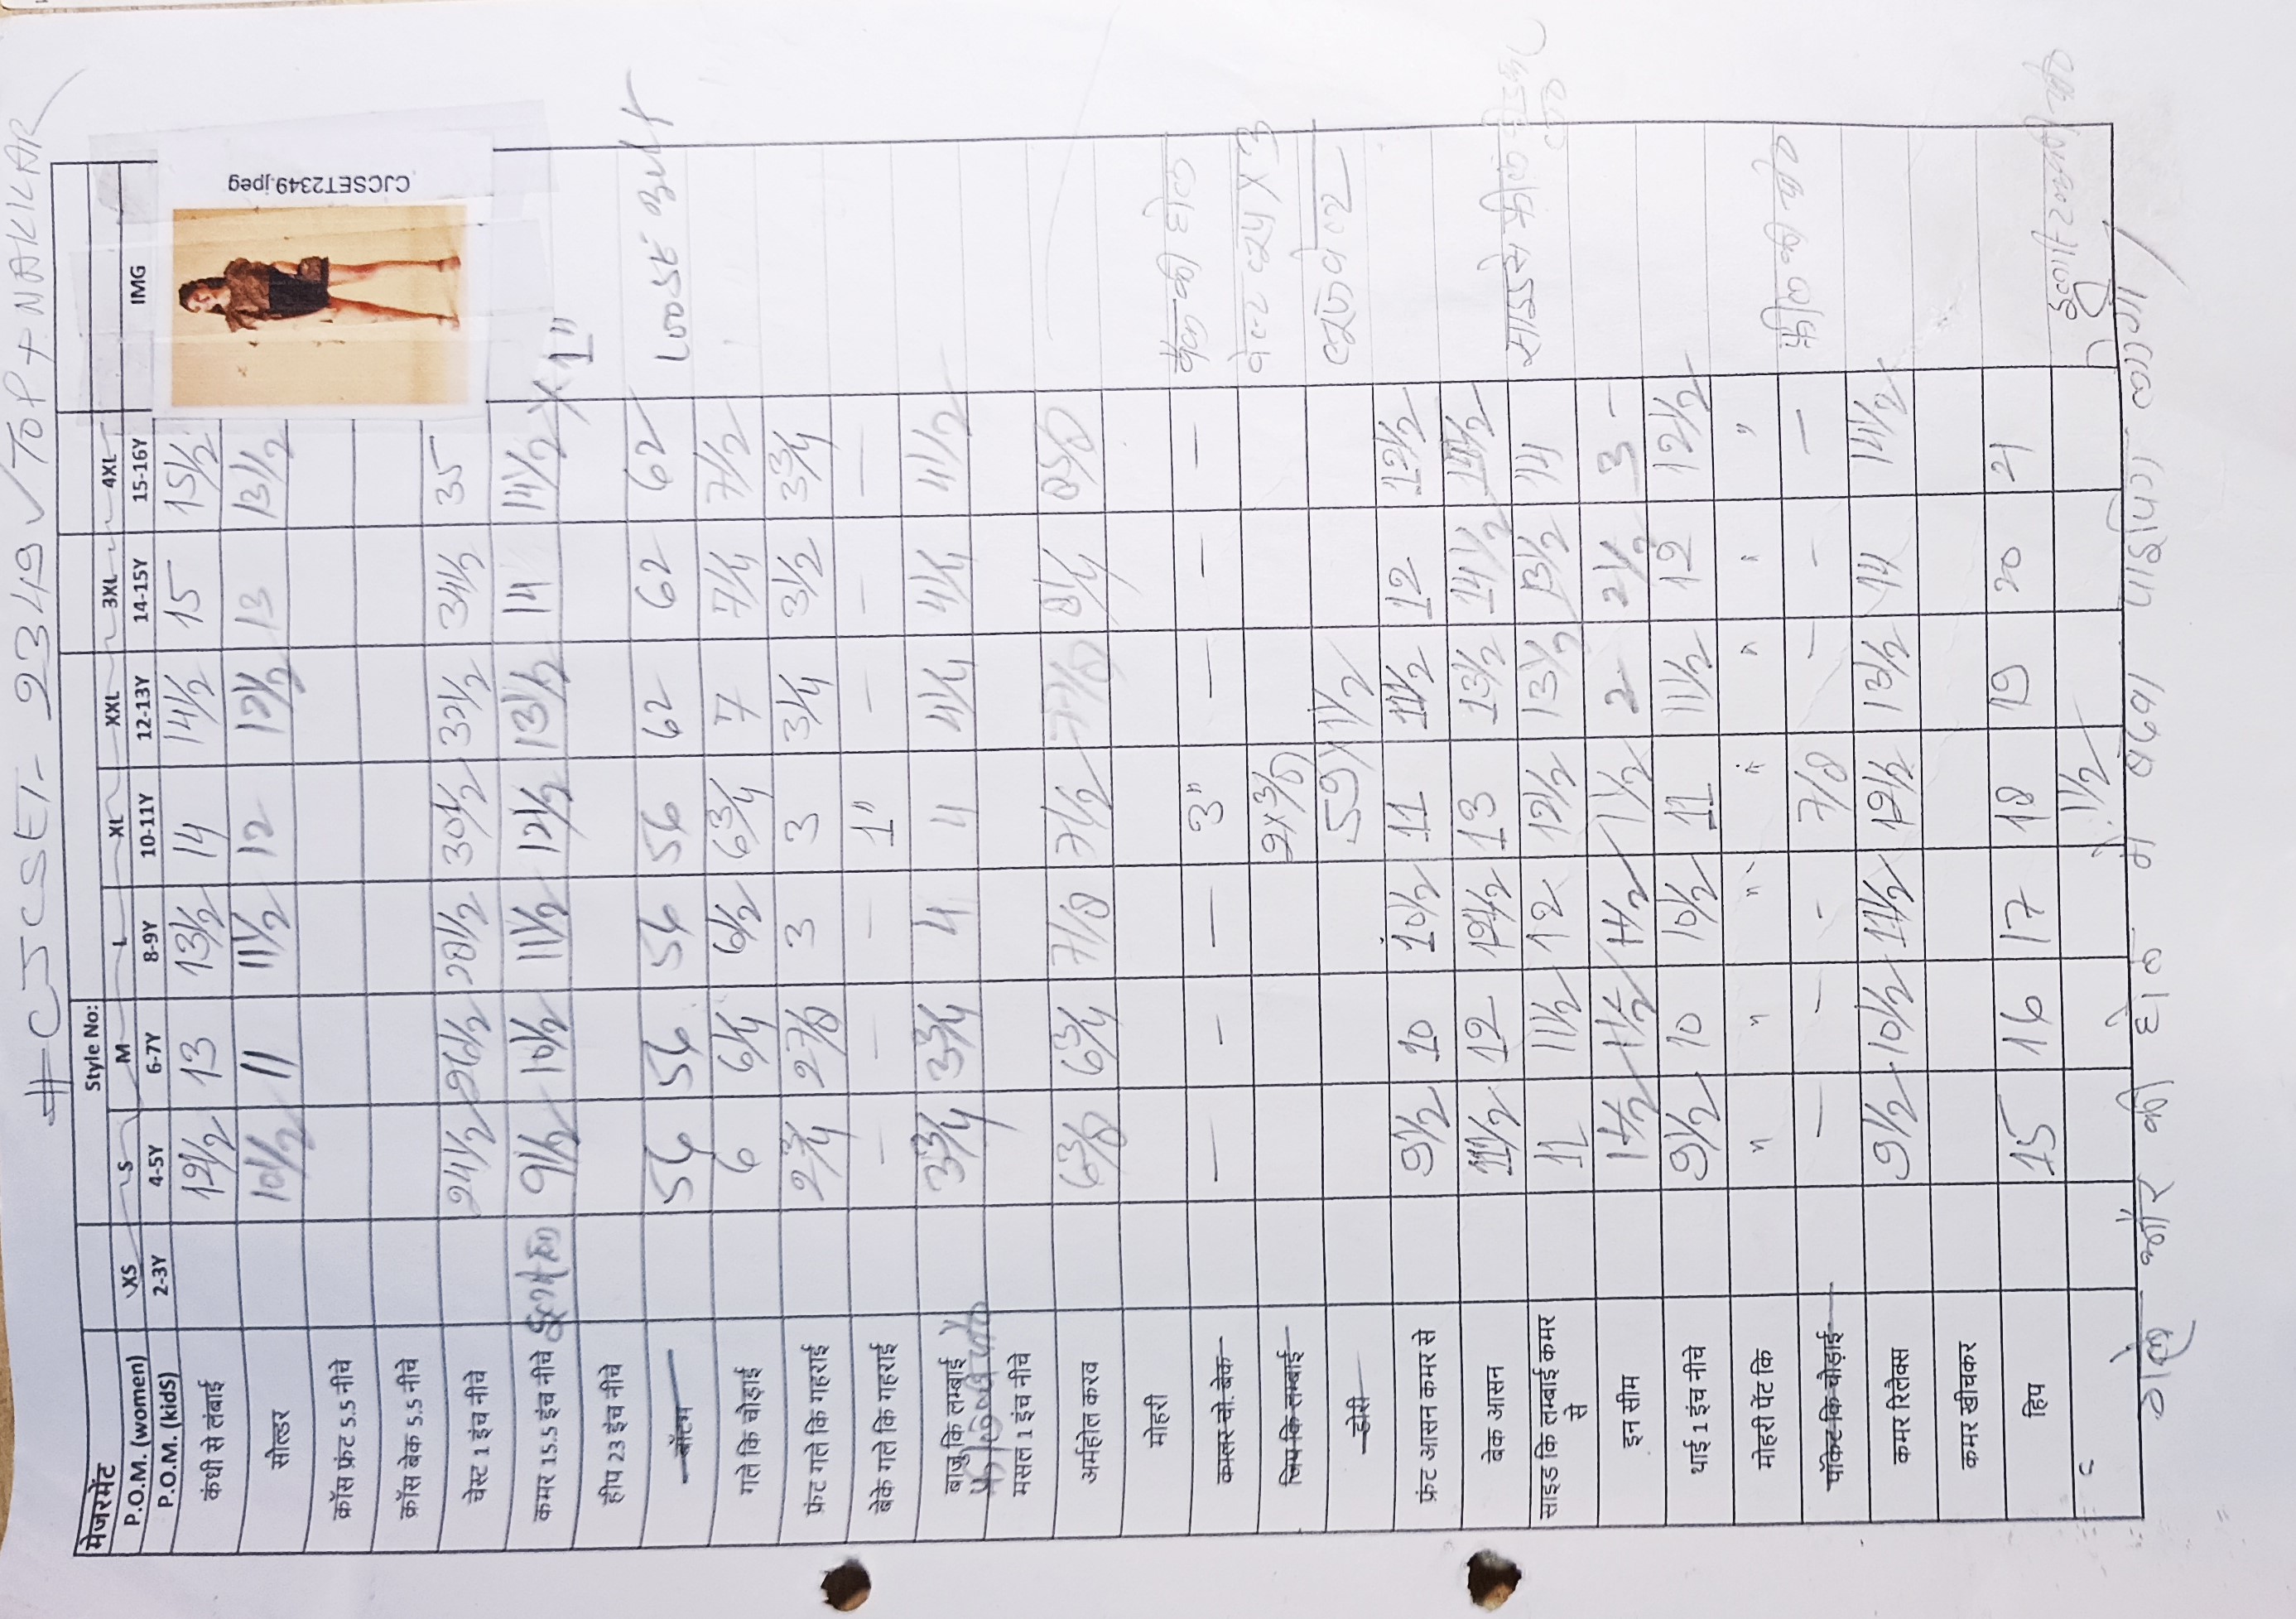 # CJCSET- 2349 ✓ TOP + NAKIKAR
Style No:
मेजरमेंट
P.O.M. (women) XS S M L XL XXL 3XL 4XL IMG
P.O.M. (kidS) 2-3Y 4-5Y 6-7Y 8-9Y 10-11Y 12-13Y 14-15Y 15-16Y
CJCSET2349.jpeg
कंधी से लंबाई 12 1/2 13 13 1/2 14 14 1/2 15 15 1/2
सोल्डर 10 1/2 11 11 1/2 12 12 1/2 13 13 1/2
क्रॉस फ्रंट 5.5 नीचे
क्रॉस बेक 5.5 नीचे
चेस्ट 1 इंच नीचे 24 1/2 26 1/2 28 1/2 30 1/2 32 1/2 34 1/2 35
कमर 15.5 इंच नीचे 9 1/2 10 1/2 11 1/2 12 1/2 13 1/2 14 14 1/2 X 1"
हीप 23 इंच नीचे
बॉटम 56 56 56 56 62 62 62 LOOSE
गले कि चौड़ाई 6 6 1/4 6 1/2 6 3/4 7 7 1/4 7 1/2
फ्रंट गले कि गहराई 2 3/4 2 7/8 3 3 3 1/4 3 1/2 3 3/4
बेके गले कि गहराई — — — 1" — — —
बाजु कि लम्बाई 3 3/4 3 3/4 4 4 4 1/4 4 1/4 4 1/2
मसल 1 इंच नीचे
अर्महोल करव 6 3/8 6 3/4 7 1/8 7 1/2 7 7/8 8 1/4 8 5/8
मोहरी
कमर चो. बेक — — — 3" — — — बैक की घोल
जिप कि लम्बाई 2 X 3/8 X 3
डोरी 59 X 1 1/2
फ्रंट आसन कमर से 9 1/2 10 10 1/2 11 11 1/2 12 12 1/2
बेक आसन 11 1/2 12 12 1/2 13 13 1/2 14 1/2 14 1/2
साइड कि लम्बाई कमर से 11 11 1/2 12 12 1/2 13 1/2 13 1/2 14 साइड से
इन सीम 1 1/2 1 1/2 1 1/2 1 1/2 2 2 1/2 3 -
थाई 1 इंच नीचे 9 1/2 10 10 1/2 11 11 1/2 12 12 1/2
मोहरी पेंट कि " " " " " " "
पॉकेट कि चौड़ाई — — — 7/8 — — — की चो
कमर रिलेक्स 9 1/2 10 1/2 11 1/2 12 1/2 13 1/2 14 14 1/2
कमर खीचकर
हिप 15 16 17 18 19 20 21
1 1/2
गले और की घोल में पाइपिंग लगेगा